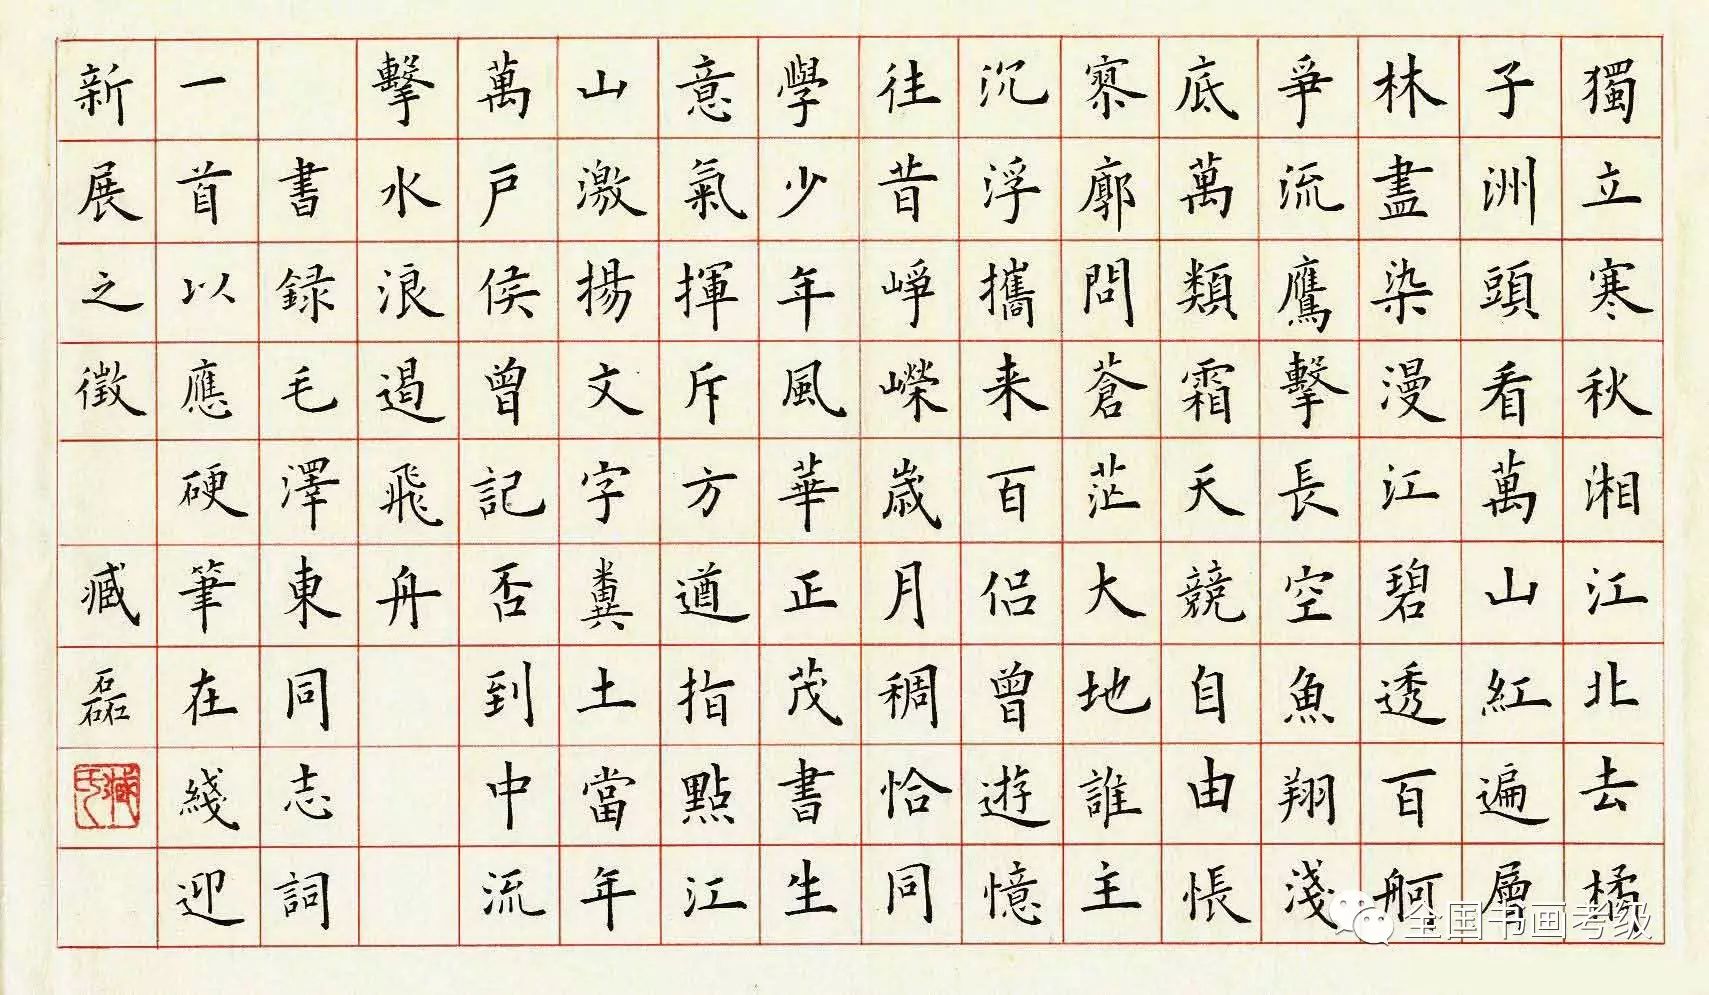 獨立寒秋湘江北去橘
子洲頭看萬山紅遍層
林盡染漫江碧透百舸
爭流鷹擊長空魚翔淺
底萬類霜天競自由悵
寥廓問蒼茫大地誰主
沉浮攜来百侣曾遊憶
往昔崢嶸歲月稠恰同
學少年風華正茂書生
意氣揮斥方遒指點江
山激揚文字糞土當年
萬戶侯曾記否到中流
擊水浪遏飛舟
書録毛澤東同志詞
一首以應硬筆在綫迎
新展之徵 臧磊
臧氏
全国书画考级